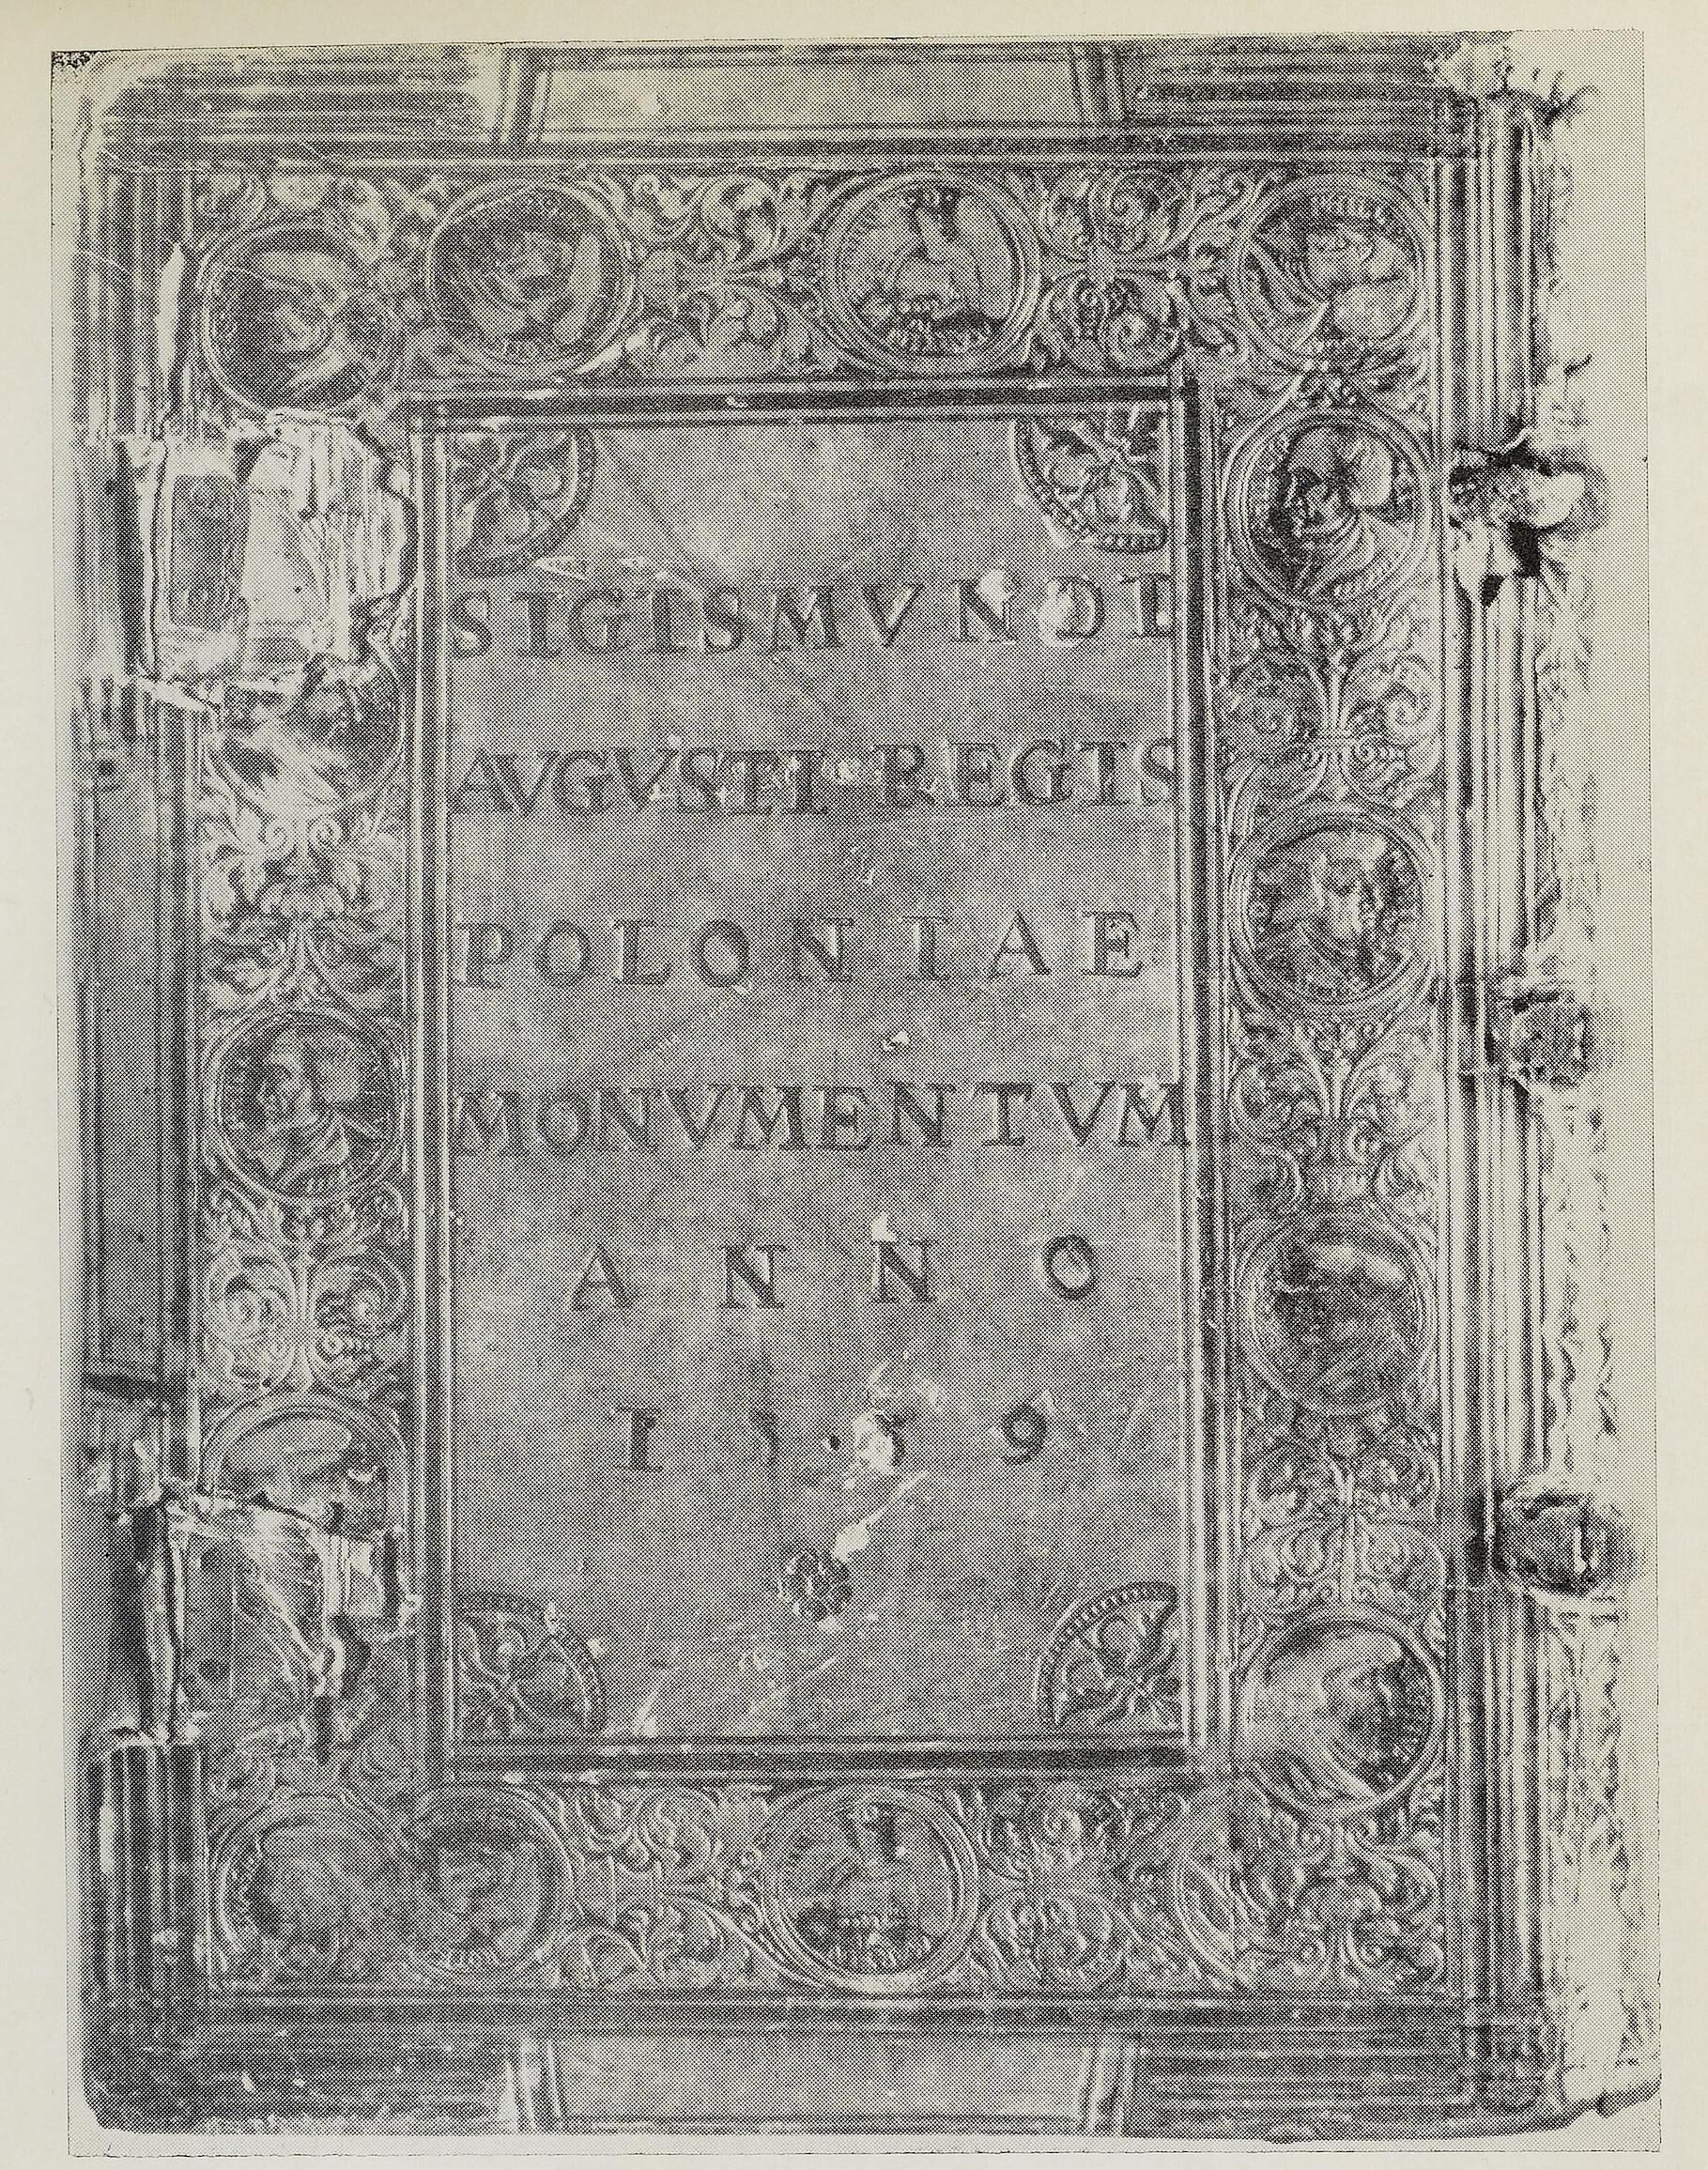 SIGISMVNDI
AVGVSTI REGIS
POLONIAE
MONVMENTVM
ANNO